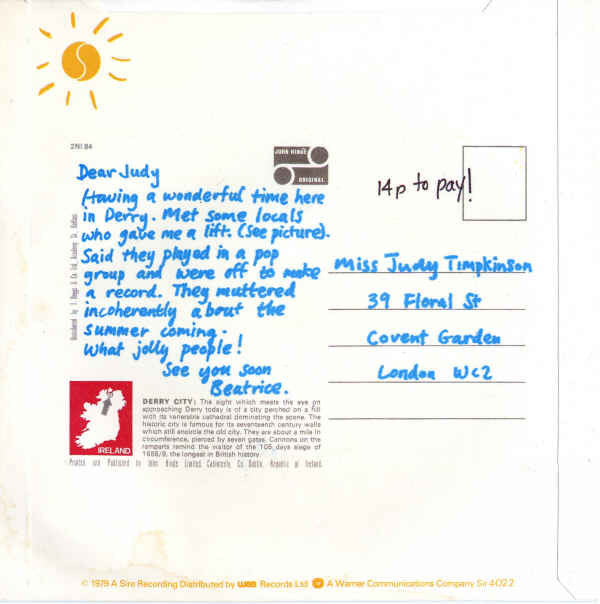 2NI 84
JOHN HINDE
ORIGINAL
14p to pay!
Dear Judy
Having a wonderful time here
in Derry. Met some locals
who gave me a lift. (See picture).
Said they played in a pop
group and were off to make
a record. They muttered
incoherently about the
summer coming.
What jolly people!
See you soon
Beatrice.
Miss Judy Timpkinson
39 Floral St
Covent Garden
London WC2
IRELAND
DERRY CITY: The sight which meets the eye on
approaching Derry today is of a city perched on a hill
with its venerable cathedral dominating the scene. The
historic city is famous for its seventeenth century walls
which still encircle the old city. They are about a mile in
circumference, pierced by seven gates. Cannons on the
ramparts remind the visitor of the 105 days siege of
1688/9, the longest in British history.
Printed and Published by John Hinde Limited, Cabinteely, Co. Dublin, Republic of Ireland.
© 1979 A Sire Recording Distributed by wea Records Ltd A Warner Communications Company Sir 4022